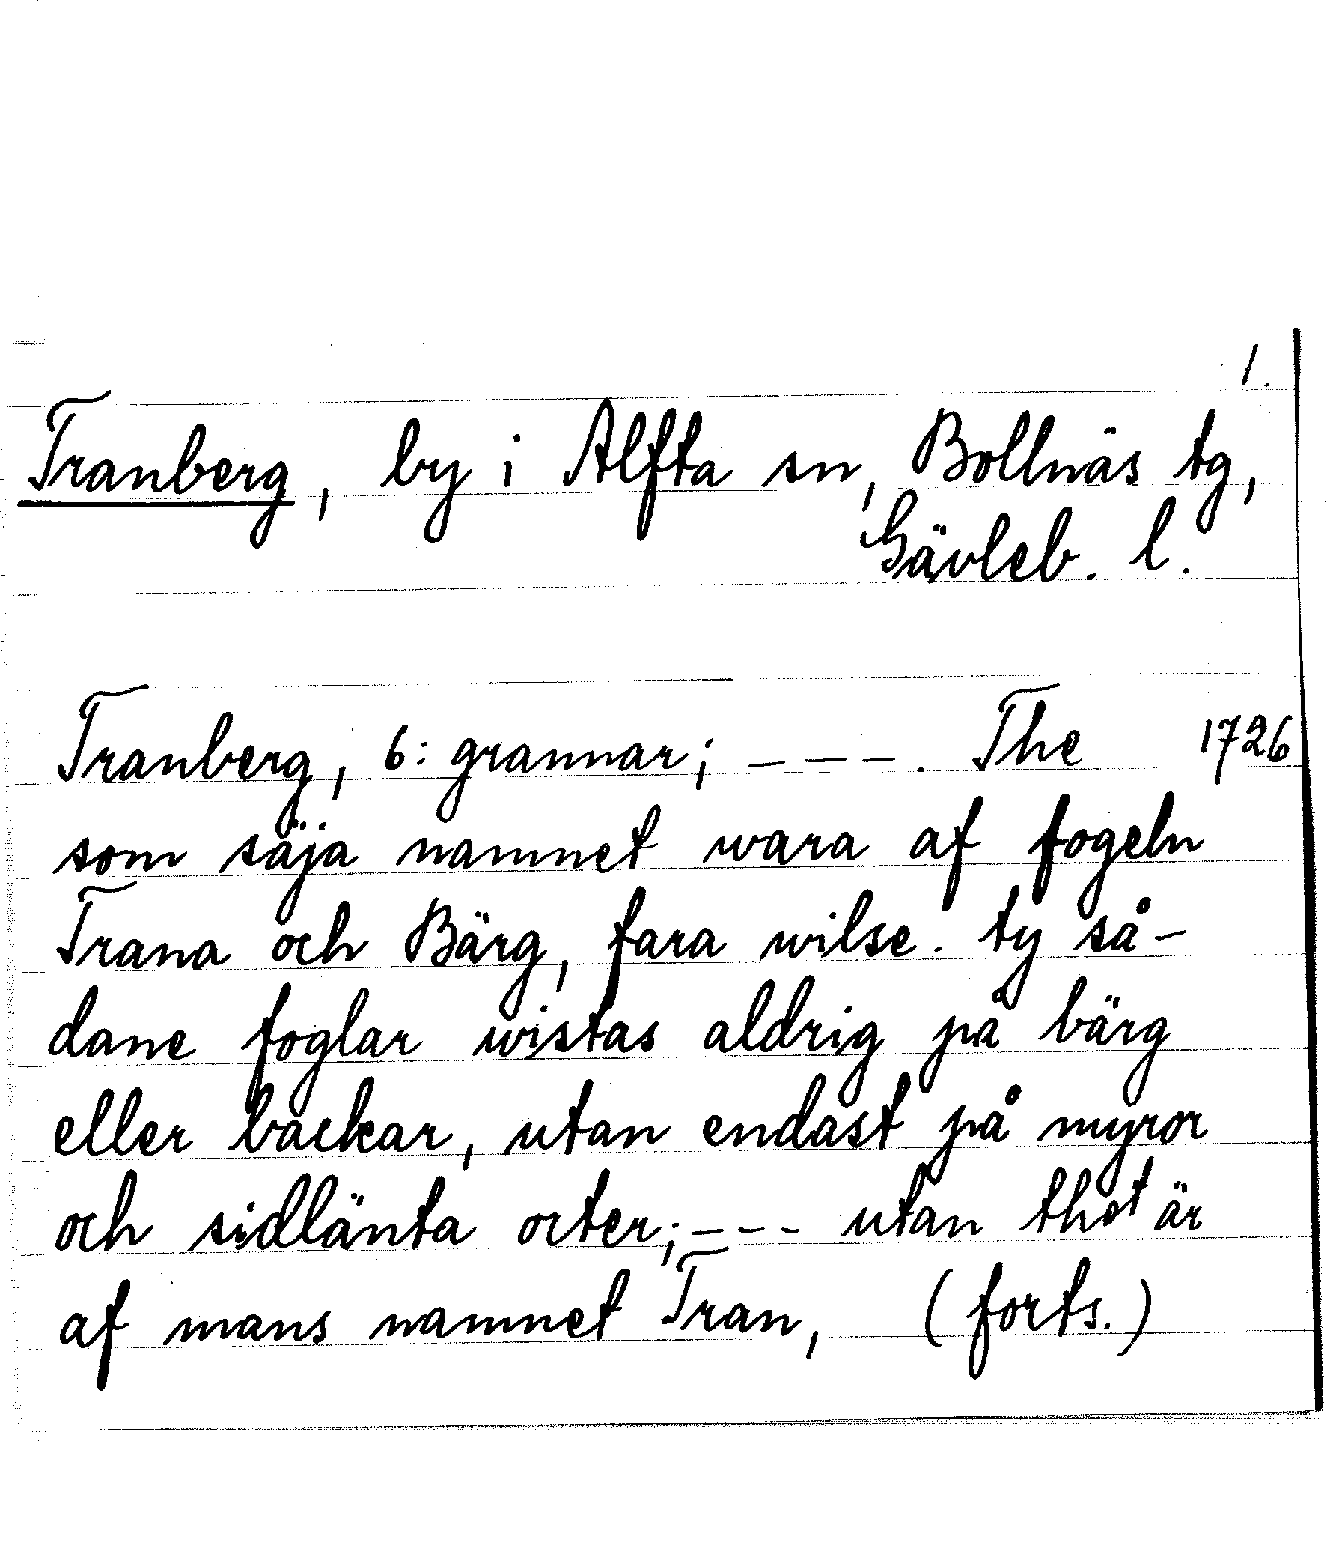 1.
Tranberg, by i Alfta sn, Bollnäs tg,
Gävleb. l.
Tranberg, 6: grannar; - - - . The 1726
som säja namnet wara af fogeln
Trana och Bärg, fara wilse. ty så-
dane foglar wistas aldrig på bärg
eller backar, utan endast på myror
och sidlänta orter; - - - utan thet är
af mans namnet Tran, (forts.)